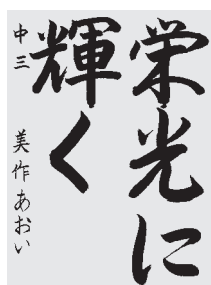 栄光に
輝く
中三 美作あおい